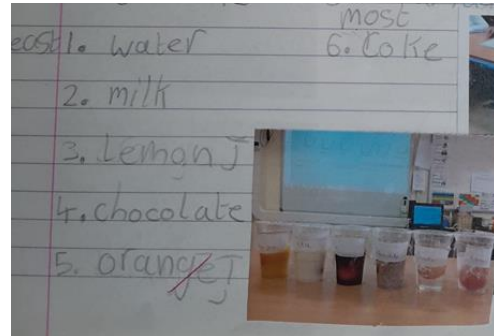 most
east 1. water
6. Coke
2. milk
3. Lemon J
4. chocolate
5. orange J